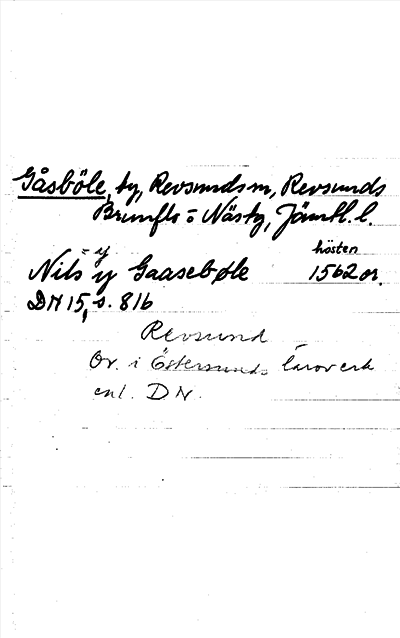 Gåsböle, by, Revsunds sn, Revsunds
Brunflo o Näs tg, Jämtl. l.
= y
Nils y Gaasebøle
hösten
1562 or.
DN 15, s. 816
Revsund
Or. i Östersunds läroverk
enl. DN.